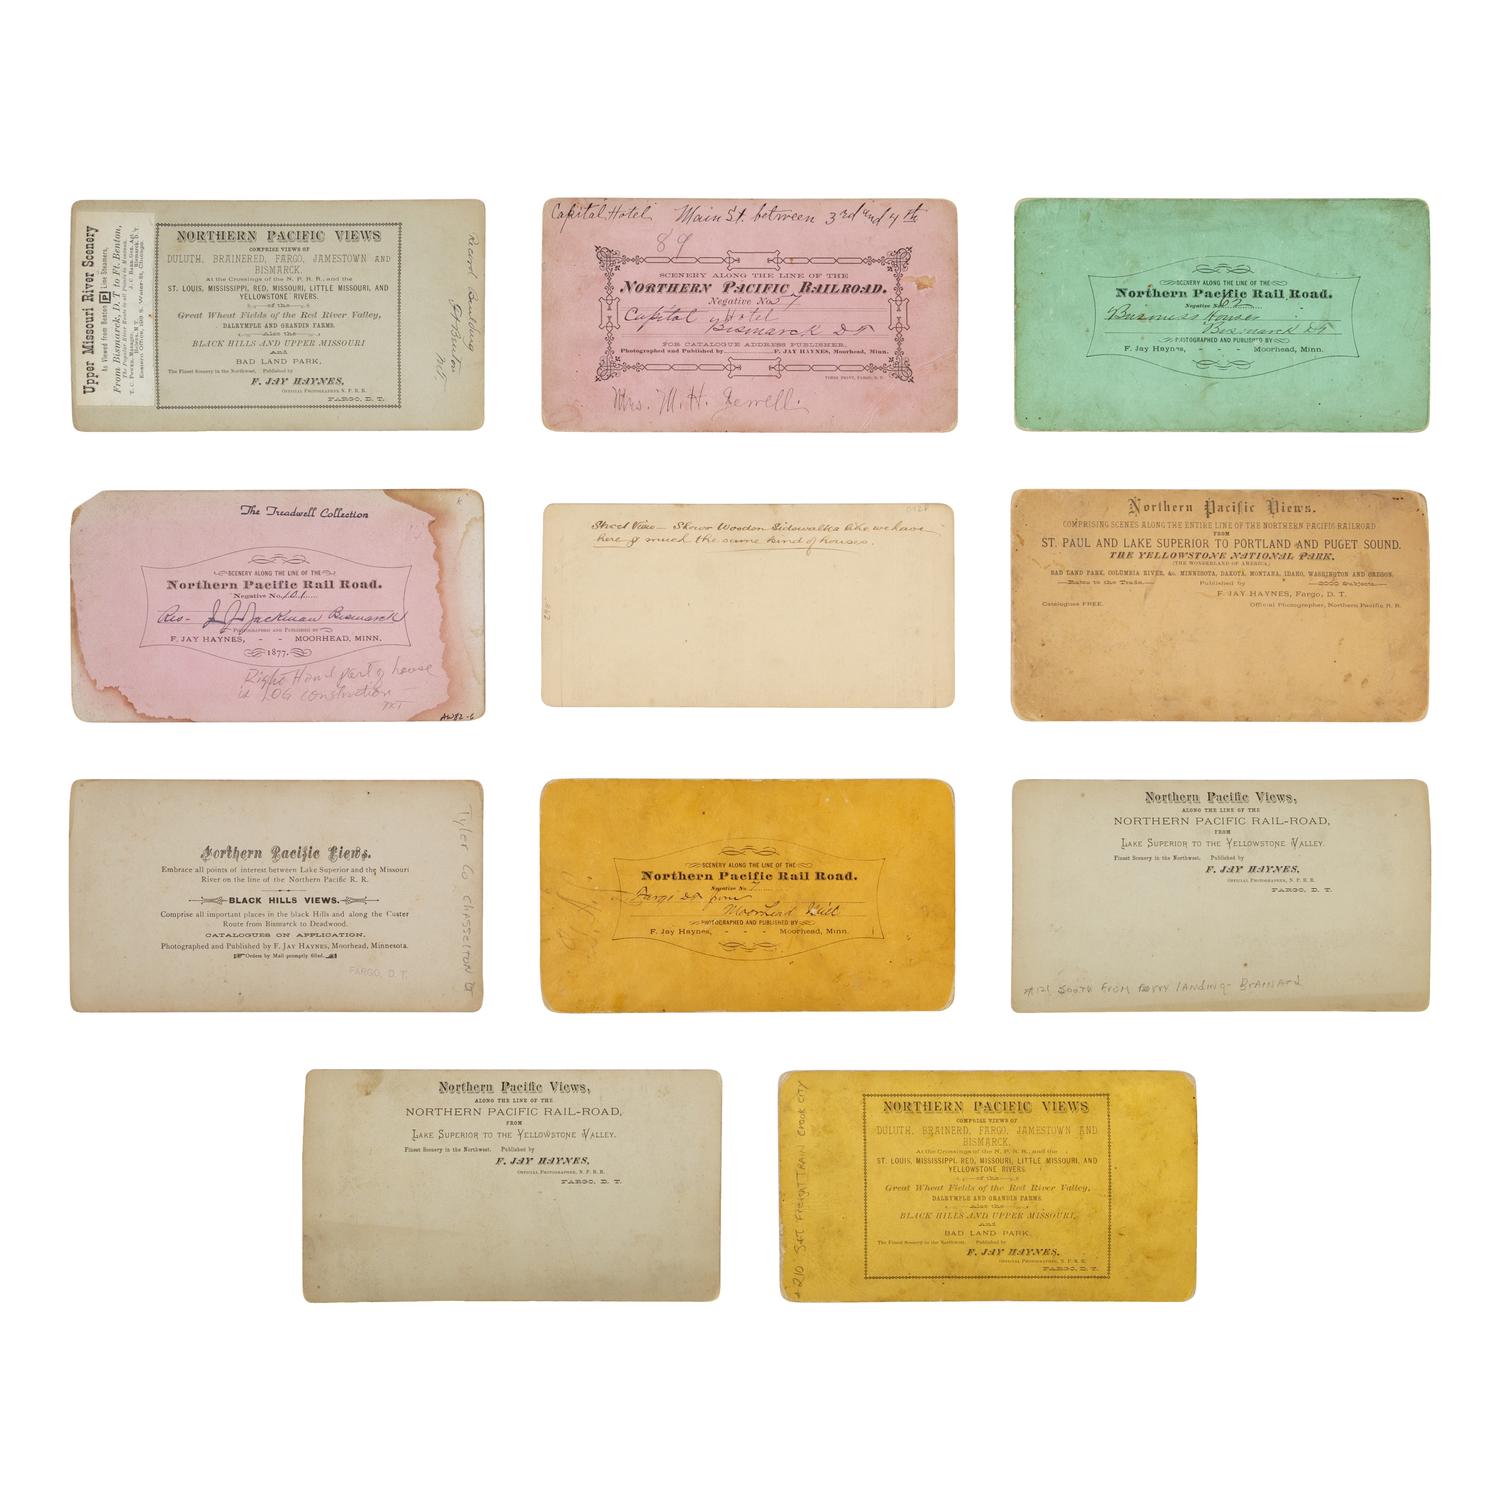 Upper Missouri River Scenery
As Viewed from Benton P Line Steamers,
From Bismarck, D. T. to Ft. Benton,
NORTHERN PACIFIC VIEWS
COMPRISE VIEWS OF
DULUTH, BRAINERED, FARGO, JAMESTOWN AND
BISMARCK,
at the Crossings of the N. P. R. R., and the
ST. LOUIS, MISSISSIPPI, RED, MISSOURI, LITTLE MISSOURI, AND
YELLOWSTONE RIVERS.
of the
Great Wheat Fields of the Red River Valley,
DALRYMPLE AND GRANDIN FARMS.
Also the
BLACK HILLS AND UPPER MISSOURI
and
BAD LAND PARK,
The Finest Scenery in the Northwest. Published by
F. JAY HAYNES,
OFFICIAL PHOTOGRAPHER N. P. R. R.
FARGO, D. T.
Record Building
Ft Benton
MT
Capital Hotel Main St. between 3rd and 4th
89
SCENERY ALONG THE LINE OF THE
NORTHERN PACIFIC RAILROAD.
Negative No. 57
Capital Hotel
Bismarck DT
FOR CATALOGUE ADDRESS PUBLISHER.
Photographed and Published by F. JAY HAYNES, Moorhead, Minn.
TIMES PRINT, FARGO, D. T.
Mrs. M. H. Jewell
SCENERY ALONG THE LINE OF THE
Northern Pacific Rail Road.
Negative No. 62
Business Houses
Bismarck DT
PHOTOGRAPHED AND PUBLISHED BY
F. Jay Haynes, - - - Moorhead, Minn.
The Treadwell Collection
SCENERY ALONG THE LINE OF THE
Northern Pacific Rail Road.
Negative No. 101
Res- J Jackman Bismarck
PHOTOGRAPHED AND PUBLISHED BY
F. JAY HAYNES, - - MOORHEAD, MINN.
1877.
Right Hand part of house
is LOG construction
AW82-6
Street View - Shows Wooden Sidewalks like we have
here & much the same kind of houses.
Northern Pacific Views.
COMPRISING SCENES ALONG THE ENTIRE LINE OF THE NORTHERN PACIFIC RAILROAD
FROM
ST. PAUL AND LAKE SUPERIOR TO PORTLAND AND PUGET SOUND.
THE YELLOWSTONE NATIONAL PARK.
(THE WONDERLAND OF AMERICA)
BAD LAND PARK, COLUMBIA RIVER, &c. MINNESOTA, DAKOTA, MONTANA, IDAHO, WASHINGTON AND OREGON.
Rates to the Trade. Published by 2000 Subjects.
F. JAY HAYNES, Fargo, D. T.
Catalogues FREE. Official Photographer, Northern Pacific R. R.
Northern Pacific Views.
Embrace all points of interest between Lake Superior and the Missouri
River on the line of the Northern Pacific R. R.
BLACK HILLS VIEWS.
Comprise all important places in the black Hills and along the Custer
Route from Bismarck to Deadwood.
CATALOGUES ON APPLICATION.
Photographed and Published by F. Jay Haynes, Moorhead, Minnesota.
Orders by Mail promptly filled.
FARGO, D. T.
Tyler Co Chasselton
SCENERY ALONG THE LINE OF THE
Northern Pacific Rail Road.
Negative No. 7
Fargo DT from
Moorhead Bluff
PHOTOGRAPHED AND PUBLISHED BY
F. Jay Haynes, - - - Moorhead, Minn.
Northern Pacific Views,
ALONG THE LINE OF THE
NORTHERN PACIFIC RAIL-ROAD,
FROM
LAKE SUPERIOR TO THE YELLOWSTONE VALLEY.
Finest Scenery in the Northwest. Published by
F. JAY HAYNES,
OFFICIAL PHOTOGRAPHER, N. P. R. R.
FARGO, D. T.
#121 South from ferry landing - Brainard
Northern Pacific Views,
ALONG THE LINE OF THE
NORTHERN PACIFIC RAIL-ROAD,
FROM
LAKE SUPERIOR TO THE YELLOWSTONE VALLEY.
Finest Scenery in the Northwest. Published by
F. JAY HAYNES,
OFFICIAL PHOTOGRAPHER, N. P. R. R.
FARGO, D. T.
210 S&T Freight Train Crook City
NORTHERN PACIFIC VIEWS
COMPRISE VIEWS OF
DULUTH, BRAINERD, FARGO, JAMESTOWN AND
BISMARCK,
At the Crossings of the N. P. R. R., and the
ST. LOUIS, MISSISSIPPI, RED, MISSOURI, LITTLE MISSOURI, AND
YELLOWSTONE RIVERS
of the
Great Wheat Fields of the Red River Valley,
DALRYMPLE AND GRANDIN FARMS.
Also the
BLACK HILLS AND UPPER MISSOURI,
and
BAD LAND PARK,
The Finest Scenery in the Northwest. Published by
F. JAY HAYNES,
OFFICIAL PHOTOGRAPHER, N. P. R. R.
FARGO, D. T.